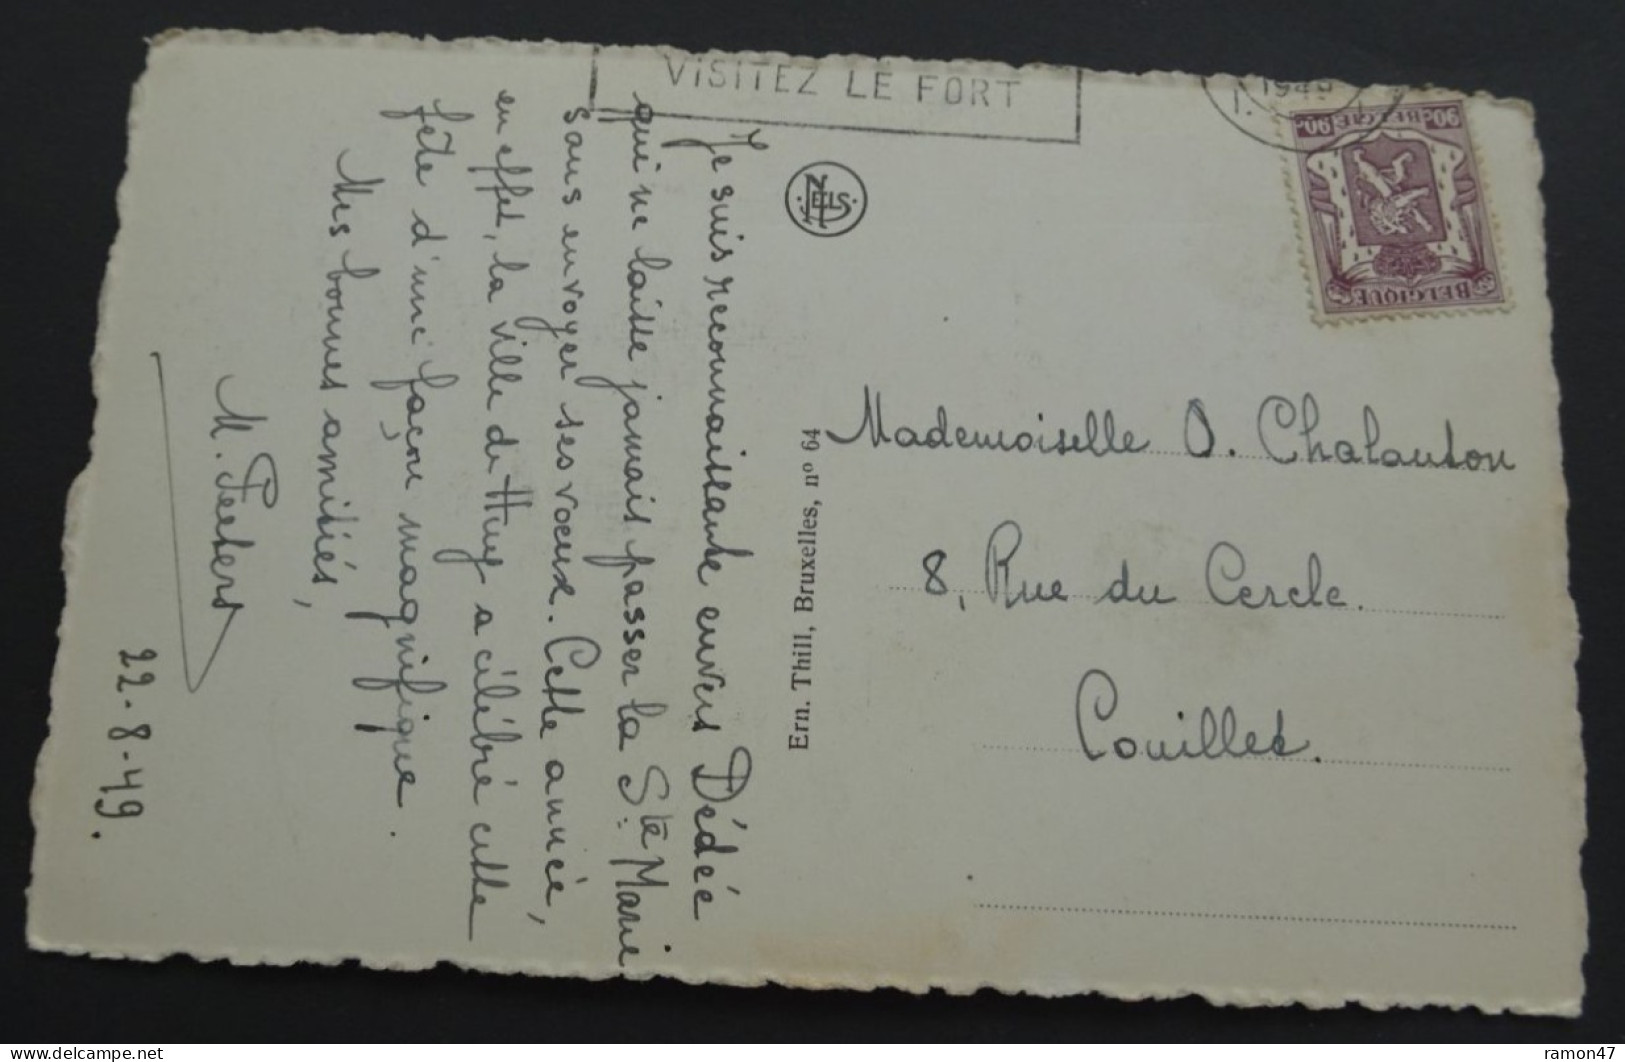 VISITEZ LE FORT
1949
BELGIE
90c
90c
BELGIQUE
NELS
Je suis reconnaissante envers Dédée
qui ne laisse jamais passer la Ste Marie
sans envoyer ses voeux. Cette année,
en effet, la ville de Huy a célébré cette
fête d'une façon magnifique.
Mes bonnes amitiés,
M.
22-8-49.
Ern. Thill, Bruxelles, nº 64
Mademoiselle O. Chalanton
8, Rue du Cercle.
Couillet.
delcampe.net
ramon47